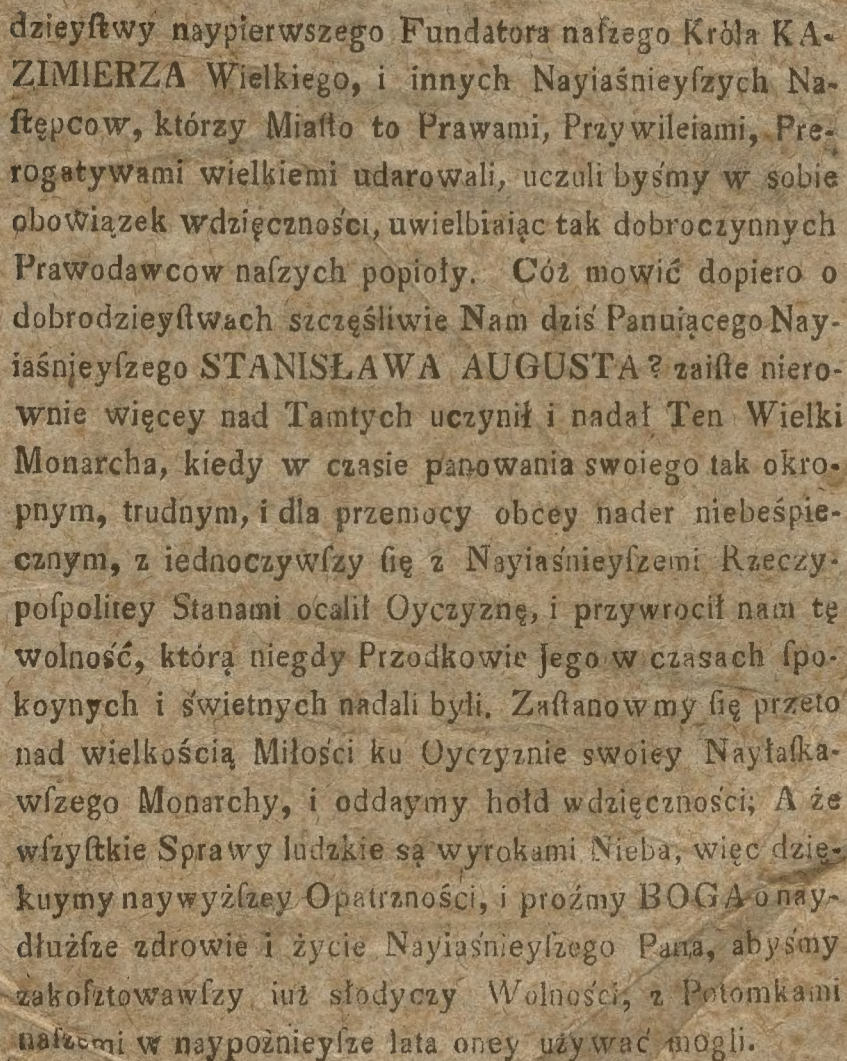 dzieyſtwy naypierwszego Fundatora naſzego Króla KA-
ZIMIERZA Wielkiego, i innych Nayiaśnieyſzych Na-
ſtępcow, którzy Miaſto to Prawami, Przywileiami, Pre-
rogatywami wielkiemi udarowali, uczuli byśmy w sobie
obowiązek wdzięczności, uwielbiaiąc tak dobroczynnych
Prawodawcow naſzych popioły. Cóż mowić dopiero o
dobrodzieyſtwach szczęśliwie Nam dziś Panuiącego Nay-
iaśnieyſzego STANISŁAWA AUGUSTA? zaiſte niero-
wnie więcey nad Tamtych uczynił i nadał Ten Wielki
Monarcha, kiedy w czasie panowania swoiego tak okro-
pnym, trudnym, i dla przemocy obcey nader niebeśpie-
cznym, z iednoczywſzy ſię z Nayiaśnieyſzemi Rzeczy-
poſpolitey Stanami ocalił Oyczyznę, i przywrocił nam tę
wolność, którą niegdy Przodkowie Jego w czasach ſpo-
koynych i świetnych nadali byli. Zaſtanowmy ſię przeto
nad wielkością Miłości ku Oyczyznie swoiey Nayłaſka-
wſzego Monarchy, i oddaymy hołd wdzięczności; A że
wſzyſtkie Sprawy ludzkie są wyrokami Nieba, więc dzię-
kuymy naywyżſzey Opatrzności, i proźmy BOGA o nay-
dłużſze zdrowie i życie Nayiaśnieyſzego Pana, abyśmy
zakoſztowawſzy iuż słodyczy Wolności, z Potomkami
naſzemi w naypoźnieyſze lata oney używać mogli.